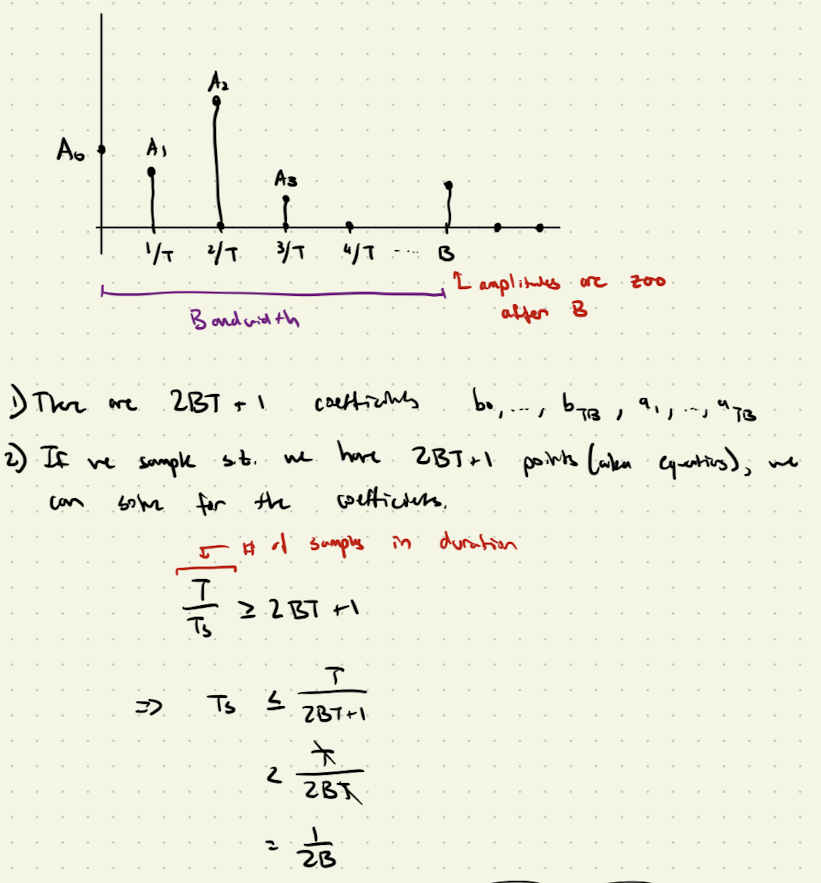 A₂
A₀ A₁
A₃
1/T 2/T 3/T 4/T ... B
Bandwidth
↑ amplitudes are zero
after B
1) There are 2BT + 1 coefficients b₀, ..., b_TB, a₁, ..., a_TB
2) If we sample s.t. we have 2BT+1 points (aka equations), we
can solve for the coefficients.
# of samples in duration
T/Ts ≥ 2BT + 1
=> Ts ≤ T/(2BT+1)
< T/(2BT)
= 1/(2B)